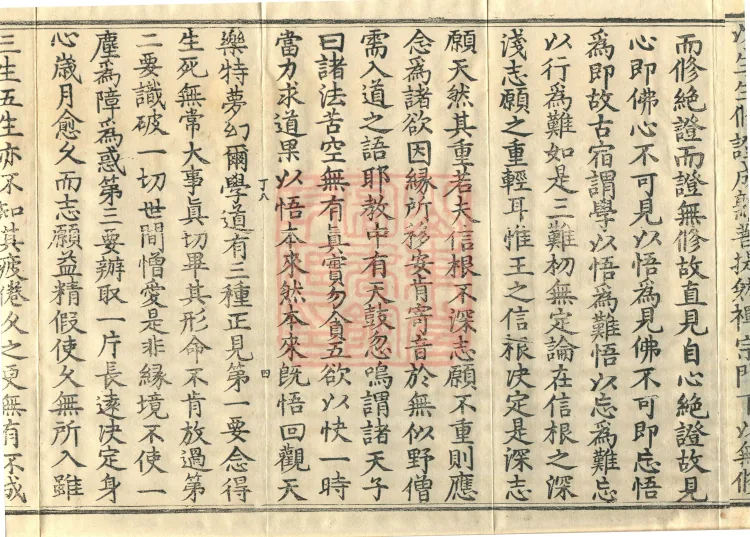 以生生修證成熟菩提然禪宗門下以無修
而修絕證而證無修故直見自心絕證故見
心即佛心不可見以悟為見佛不可即忘悟
為即故古宿謂學以悟為難悟以忘為難忘
以行為難如是三難初無定論在信根之深
淺志願之重輕耳惟王之信根決定是深志
願天然其重若夫信根不深志願不重則應
念為諸欲因緣所移安肯寄音於無似野僧
需入道之語耶教中有天鼓忽鳴謂諸天子
曰諸法苦空無有真實勿貪五欲以快一時
當力求道果以悟本來然本來既悟回觀天
丁八
四
樂特夢幻爾學道有三種正見第一要念得
生死無常大事真切畢其形命不肯放過第
二要識破一切世間憎愛是非緣境不使一
塵為障為惑第三要辦取一片長遠決定身
心歲月愈久而志願益精假使久無所入雖
三生五生亦不知其疲倦久之更無有不成